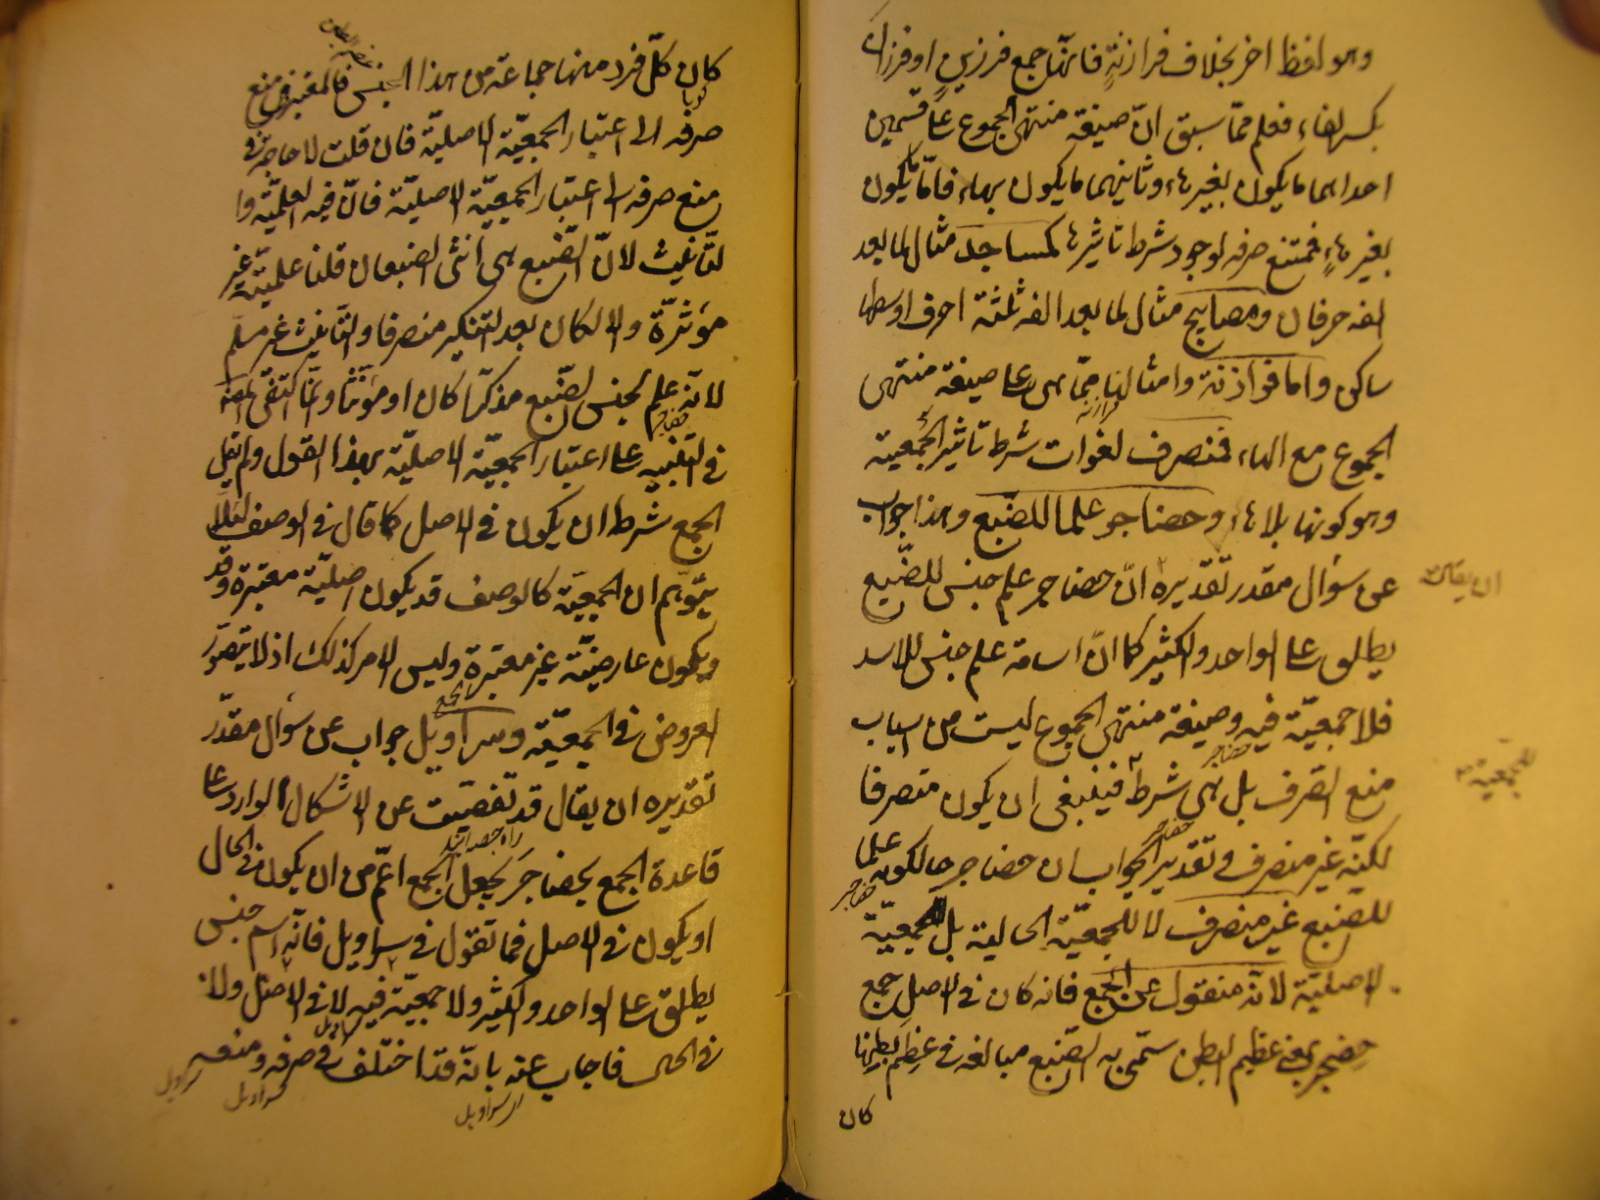 وهو لفظ اخر بخلاف فرازنة فانها جمع فرزين او فرزان
بكسر لفاء فعلم مما سبق ان صيغة منتهى الجموع على قسمين
احدهما ما يكون بغير هاء وثانيهما ما يكون بهاء فاما ما يكون
بغير هاء فممتنع صرفه لوجود شرط تاثيرها كمساجد مثال لما بعد
الفه حرفان ومصابيح مثال لما بعد الفه ثلثة احرف اوسطها
ساكن واما فرازنة وامثالها مما هى على صيغة منتهى
الجموع مع الهاء فمنصرف لفوات شرط تاثير الجمعية
وهو كونها بلا هاء وحضاجر علما للضبع وهذا جواب
عن سؤال مقدر تقديره ان حضاجر علم جنس للضبع
ان يقال
يطلق على الواحد والكثير كما ان اسامة علم جنس للاسد
فلا جمعية فيه وصيغة منتهى الجموع ليست من اسباب
للجمعية
حضاجر
منع الصرف بل هى شرط فينبغى ان يكون منصرفا
حضاجر
لكنه غير منصرف وتقدير الجواب ان حضاجر حال كونه علما
حضاجر
للضبع غير منصرف لا للجمعية الحالية بل للجمعية
الاصلية لانه منقول عن الجمع فانه كان فى الاصل جمع
حضجر بمعنى عظيم البطن سمى به الضبع مبالغة فى عظم بطنها
كان
كان كل فرد منها جماعة من هذا الجنس فالمعتبر فى منع
صرفه الى اعتبار الجمعية الاصلية فان قلت لا حاجة فى
منع صرفه الى اعتبار الجمعية الاصلية فان فيه العلمية وا
لتانيث لان الضبع هى انثى الضبعان قلنا علميته غير
مؤثرة والا لكان بعد التنكير منصرفا والتانيث غير مسلم
لانه علم لجنس الضبع مذكرا كان او مؤنثا وانما اكتفى المصنف
حضاجر
فى التنبيه على اعتبار الجمعية الاصلية بهذا القول ولم يقل
الجمع شرط ان يكون فى الاصل كما قال فى الوصف لئلا
يتوهم ان الجمعية كالوصف قد يكون اصلية معتبرة وقد
ويكون عارضية غير معتبرة وليس الامر كذلك اذ لا يتصور
الجمع
العروض فى الجمعية وسراويل جواب عن سؤال مقدر
تقديره ان يقال قد تفصيت عن الاشكال الوارد على
قاعدة الجمع بحضاجر بجعل الجمع اعم من ان يكون فى الحال
او يكون فى الاصل فما تقول فى سراويل فانه اسم جنس
يطلق على الواحد والكثير ولا جمعية فيه لا فى الاصل ولا
فى الحال فاجاب عنه بانه قد اختلف فى صرفه ومنعه
سراويل
سراويل
اى سراويل